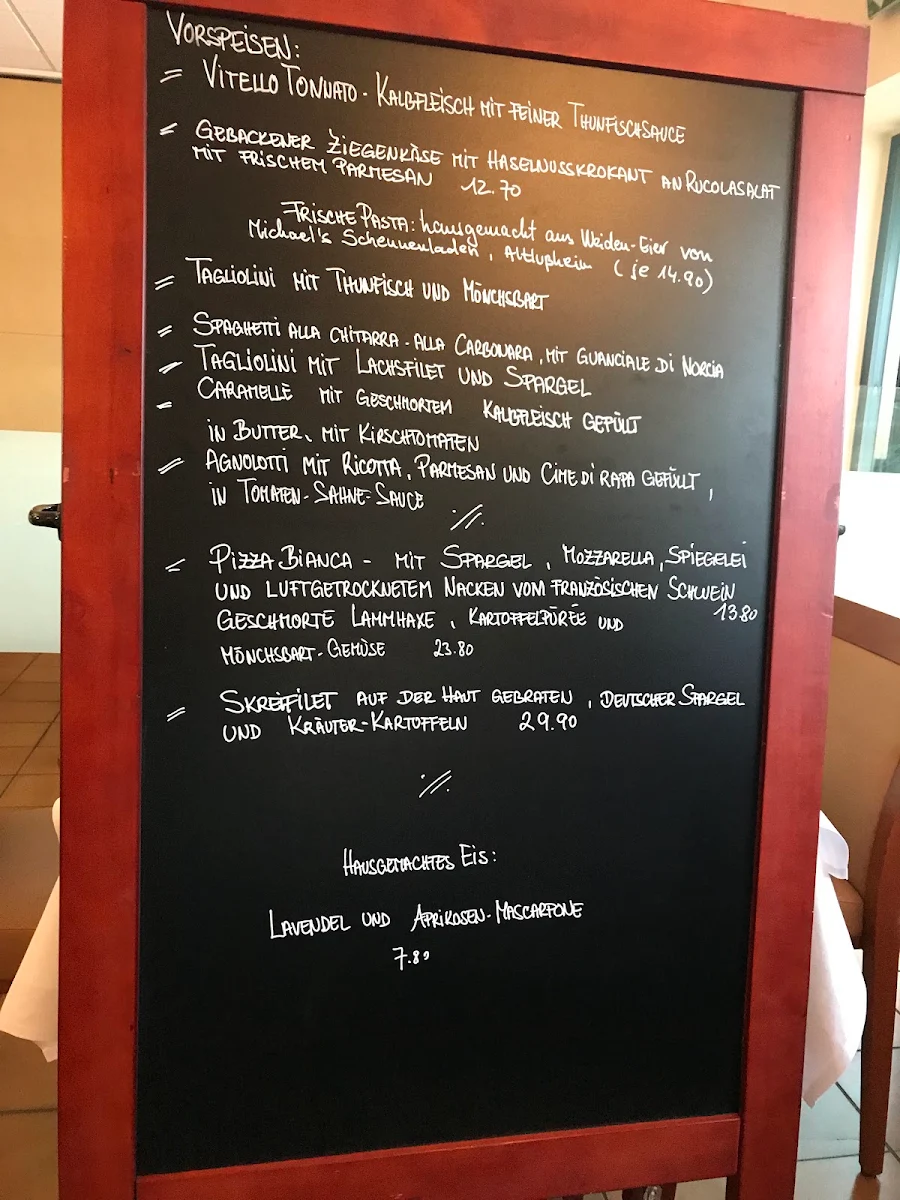 VORSPEISEN:
= VITELLO TONNATO - KALBFLEISCH MIT FEINER THUNFISCHSAUCE
= GEBACKENER ZIEGENKÄSE MIT HASELNUSSKROKANT AN RUCOLASALAT
MIT FRISCHEM PARMESAN 12.70
FRISCHE PASTA: hausgemacht aus Weiden-Eier von
Michael's Scheunenladen, Altlupheim (je 14.90)
= TAGLIOLINI MIT THUNFISCH UND MÖNCHSBART
= SPAGHETTI ALLA CHITARRA - ALLA CARBONARA, MIT GUANCIALE DI NORCIA
= TAGLIOLINI MIT LACHSFILET UND SPARGEL
= CARAMELLE MIT GESCHMORTEM KALBFLEISCH GEFÜLLT
IN BUTTER, MIT KIRSCHTOMATEN
= AGNOLOTTI MIT RICOTTA, PARMESAN UND CIME DI RAPA GEFÜLLT,
IN TOMATEN-SAHNE-SAUCE
·//·
= PIZZA BIANCA - MIT SPARGEL, MOZZARELLA, SPIEGELEI
UND LUFTGETROCKNETEM NACKEN VOM FRANZÖSISCHEN SCHWEIN
13.80
GESCHMORTE LAMMHAXE, KARTOFFELPÜRÉE UND
MÖNCHSBART-GEMÜSE 23.80
= SKREIFILET AUF DER HAUT GEBRATEN, DEUTSCHER SPARGEL
UND KRÄUTER-KARTOFFELN 29.90
·//·
HAUSGEMACHTES EIS:
LAVENDEL UND APRIKOSEN-MASCARPONE
7.80